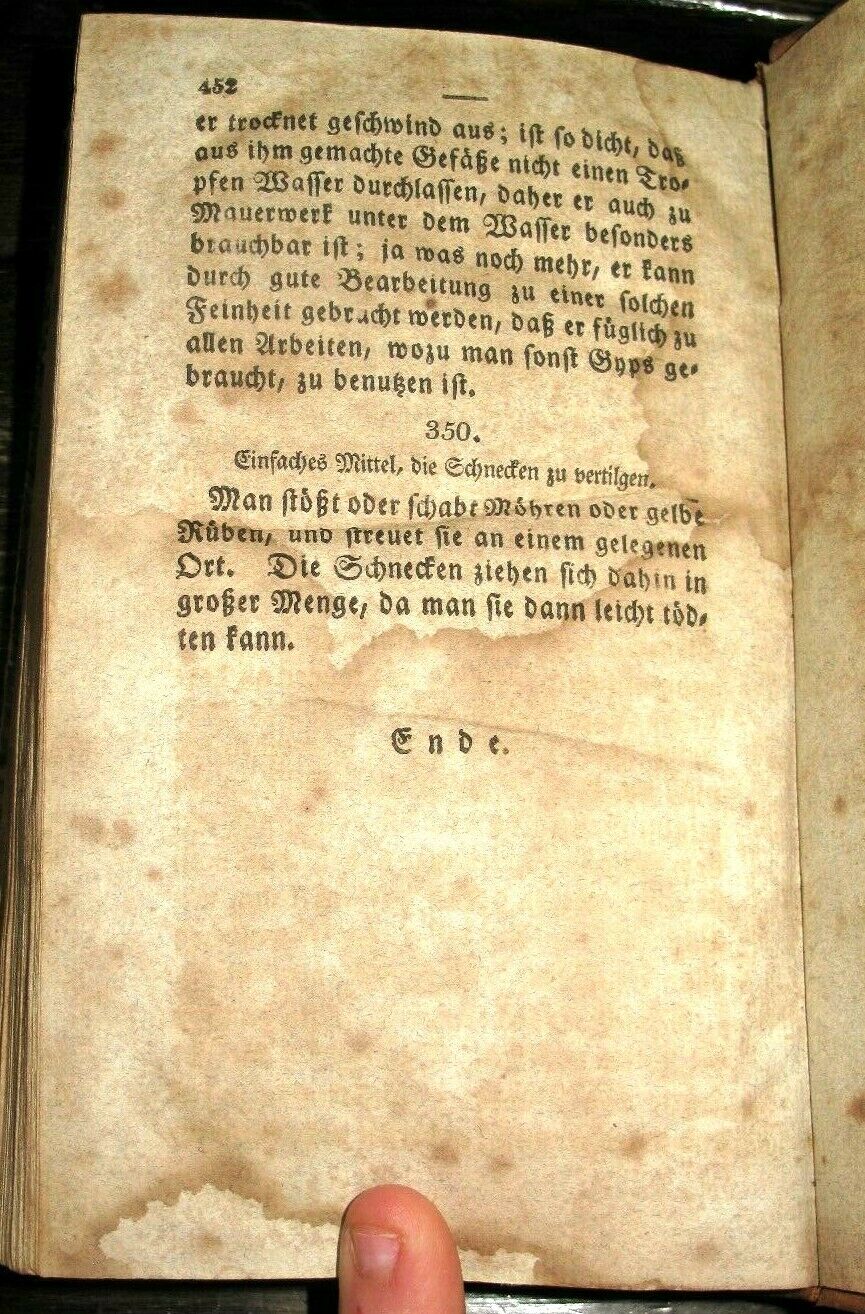 452
er trocknet geschwind aus; ist so dicht, daß
aus ihm gemachte Gefäße nicht einen Tro-
pfen Wasser durchlassen, daher er auch zu
Mauerwerk unter dem Wasser besonders
brauchbar ist; ja was noch mehr, er kann
durch gute Bearbeitung zu einer solchen
Feinheit gebracht werden, daß er füglich zu
allen Arbeiten, wozu man sonst Gyps ge-
braucht, zu benutzen ist.
350.
Einfaches Mittel, die Schnecken zu vertilgen.
Man stößt oder schabt Möhren oder gelbe
Rüben, und streuet sie an einem gelegenen
Ort. Die Schnecken ziehen sich dahin in
großer Menge, da man sie dann leicht töd-
ten kann.
Ende.